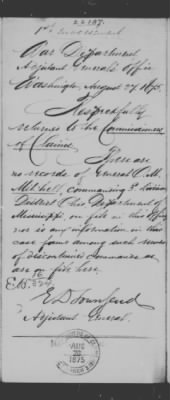 22187.
1st Indorsement
War Department
Adjutant General's Office
Washington, August 27, 1875.
Respectfully
returned to the Commissioners
of Claims.
There are
no records of General O. M.
Mitchell, commanding 3d Division
District this Department of
Mississippi, on file in this Office,
nor is any information in this
case found among such records
of discontinued commands as
are on file here.
E. D. Townsend
Adjutant General.
AUG
1875